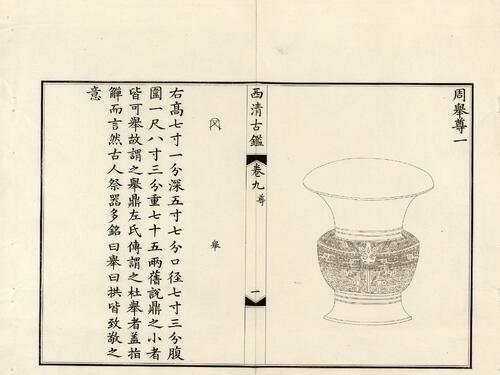 周舉尊一
西清古鑑 卷九 尊 一
舉
右髙七寸一分深五寸七分口徑七寸三分腹
圍一尺八寸三分重七十五兩舊說鼎之小者
皆可舉故謂之舉鼎左氏傳謂之杜舉者盖指
觶而言然古人祭器多銘曰舉曰拱皆致敬之
意